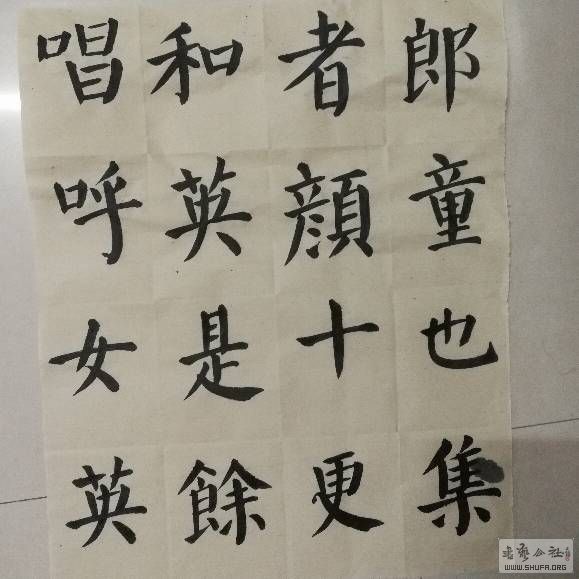 郎童也集
者顔十更
和英是餘
唱呼女英
書藝公社
WWW.SHUFA.ORG